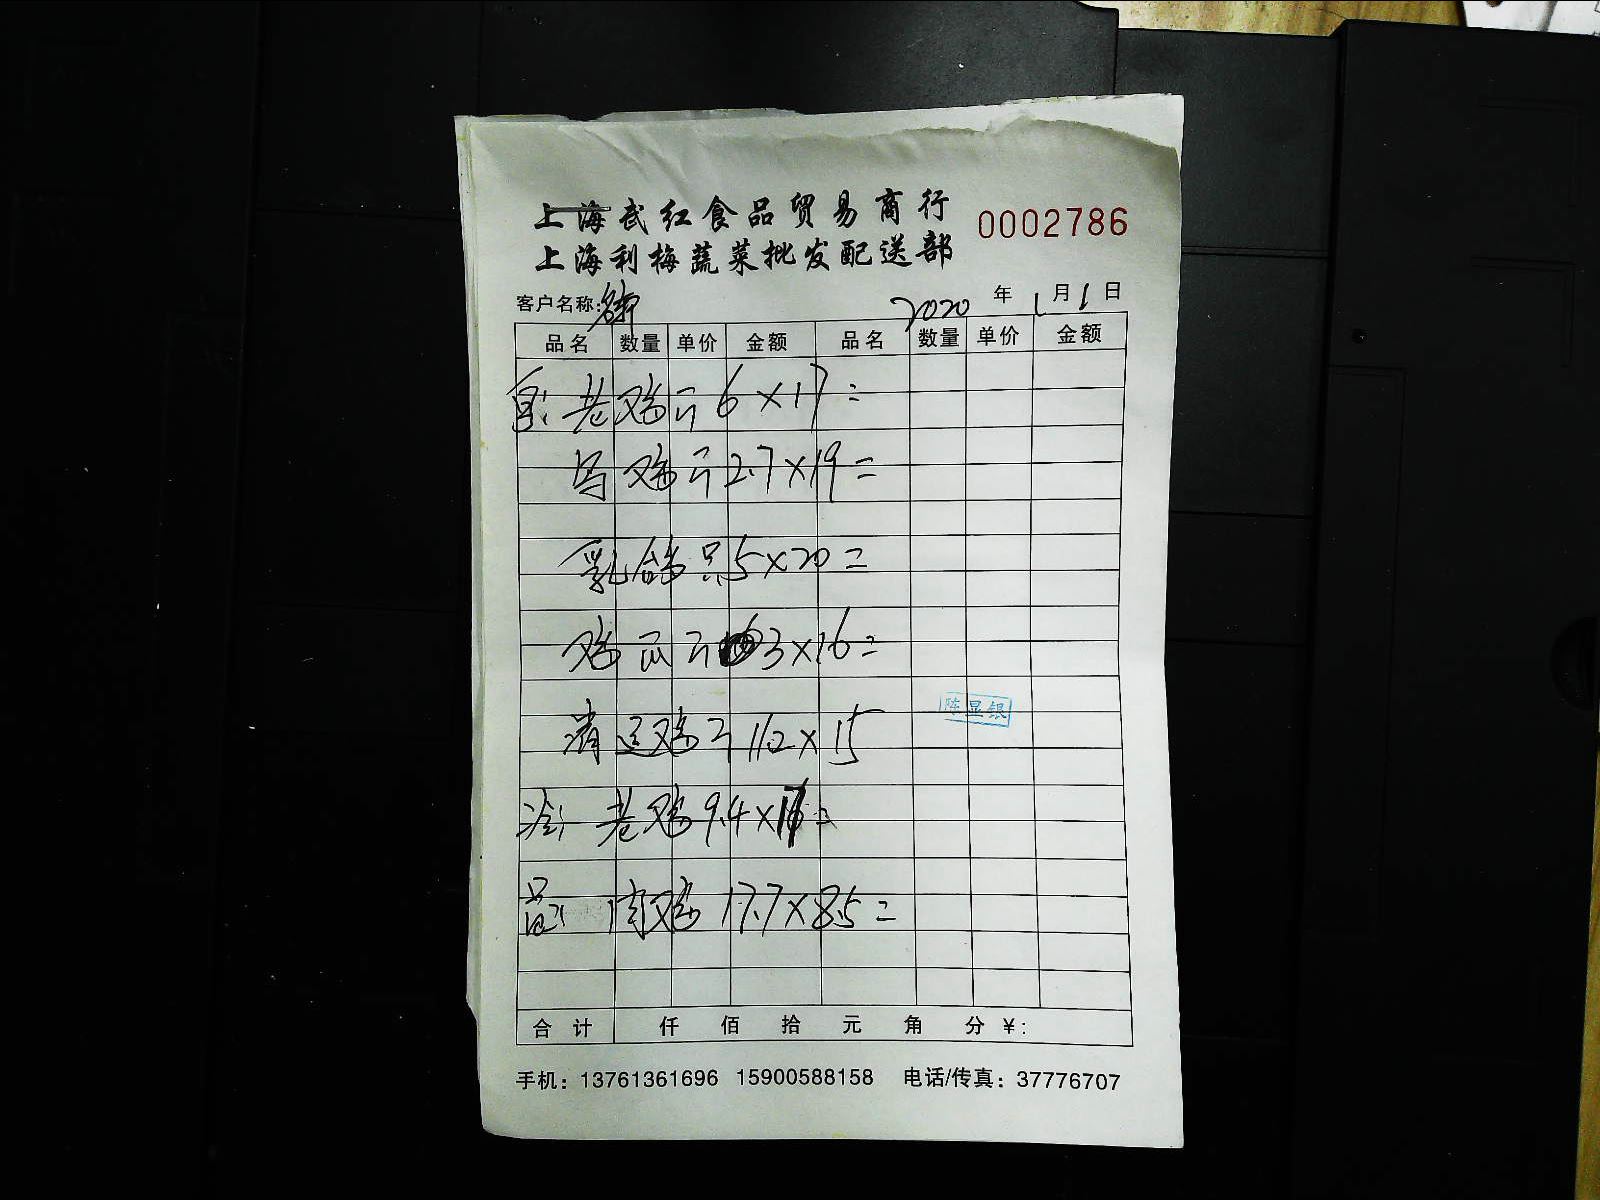 上海武红食品贸易商行
0002786
上海利梅蔬菜批发配送部
客户名称: 2020 年 1 月 1 日
品名 数量 单价 金额 品名 数量 单价 金额
老鸡 斤 6×17=
鸡 斤 2.7×19=
乳鸽 只 5×20=
鸡爪 斤 3×16=
逍遥鸡 斤 11.2×15
陈显银
老鸡 9.4×17=
肉鸡 17.7×8.5=
合计 仟 佰 拾 元 角 分 ¥:
手机: 13761361696 15900588158 电话/传真: 37776707